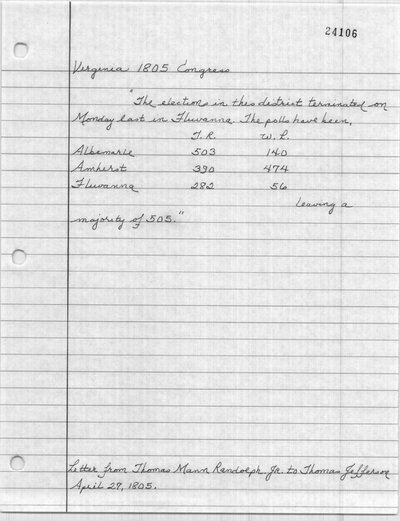 24106
Virginia 1805 Congress
"The elections in this district terminated on
Monday last in Fluvanna. The polls have been,
T. R. W. L.
Albemarle 503 140
Amherst 390 474
Fluvanna 282 56
Leaving a
majority of 505."
Letter from Thomas Mann Randolph Jr. to Thomas Jefferson
April 29, 1805.